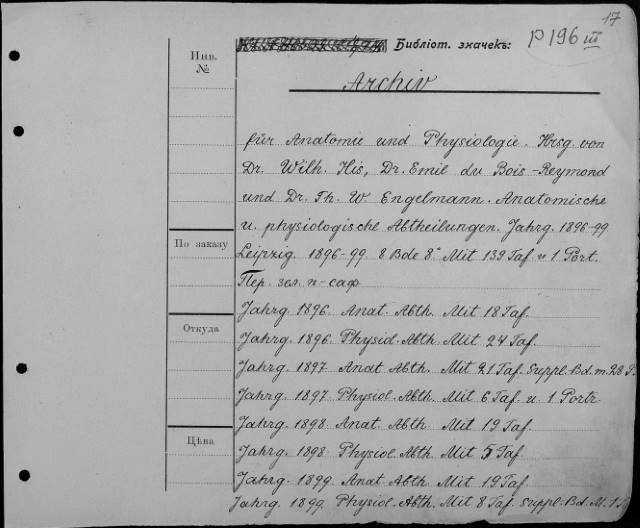 17
Библіот. значекъ: P 196 III
Инв.
№
Archiv
für Anatomie und Physiologie. Hrsg. von
Dr. Wilh. His, Dr. Emil du Bois-Reymond
und Dr. Th. W Engelmann. Anatomische
u. physiologische Abtheilungen. Jahrg. 1896-99
По заказу
Leipzig. 1896-99. 8 Bde 8° Mit 139 Taf. u 1 Port.
Пер. зел. п-саф
Jahrg. 1896. Anat. Abth. Mit 18 Taf.
Откуда
Jahrg. 1896. Physiol. Abth. Mit 24 Taf.
Jahrg. 1897 Anat. Abth. Mit 21 Taf. Suppl.-Bd. m. 28
Jahrg. 1897 Physiol. Abth. Mit 6 Taf. u. 1 Portr
Jahrg. 1898. Anat. Abth Mit 19 Taf.
Цѣна
Jahrg. 1898 Physiol. Abth. Mit 5 Taf.
Jahrg. 1899. Anat. Abth. Mit 19 Taf
Jahrg. 1899. Physiol. Abth. Mit 8 Taf. Suppl-Bd. M.